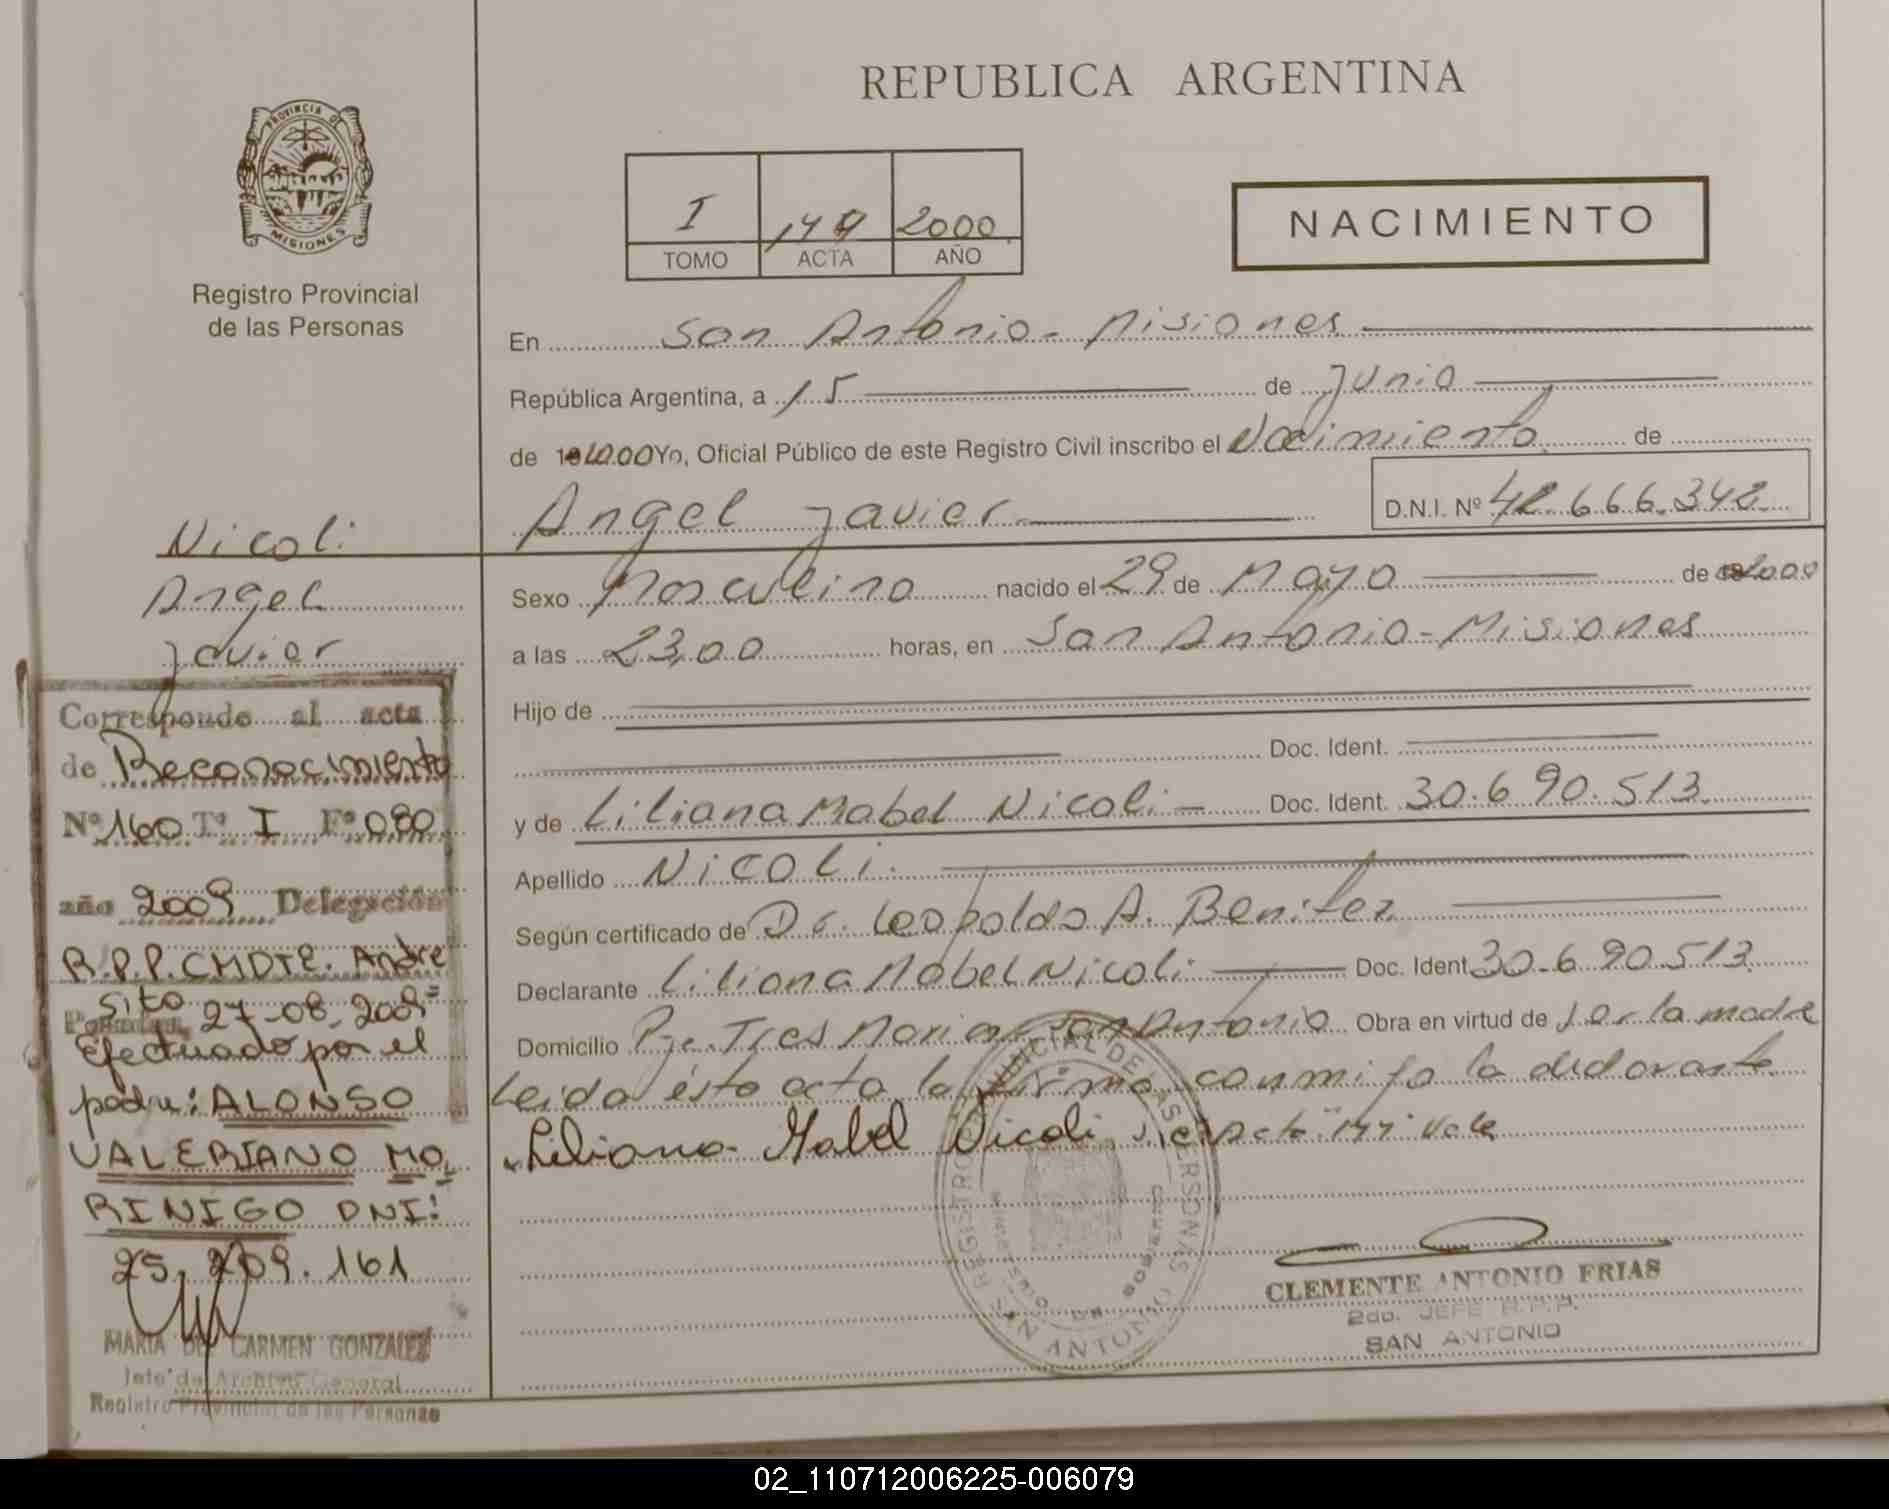 REPUBLICA ARGENTINA
PROVINCIA DE
MISIONES
Registro Provincial
de las Personas
I 2000
TOMO ACTA AÑO
NACIMIENTO
En San Antonio - Misiones
República Argentina, a 15 de Junio
de 2000 Yo, Oficial Público de este Registro Civil inscribo el Nacimiento de
Angel Javier D.N.I. Nº 42.666.342
Sexo Masculino nacido el 29 de Mayo de 2000
a las 23,00 horas, en San Antonio - Misiones
Hijo de
Doc. Ident.
y de Liliana Mabel Nicoli Doc. Ident. 30.690.513
Apellido Nicoli
Según certificado de Dr. Leopoldo A. Benitez
Declarante Liliana Mabel Nicoli Doc. Ident. 30.690.513
Domicilio Pje. Tres Marias San Antonio Obra en virtud de ser la madre
Leida ésta acta la firma conmigo la declarante
Liliana Mabel Nicoli Vale
REGISTRO PROVINCIAL DE LAS PERSONAS
MINISTERIO DE GOBIERNO
SAN ANTONIO
CLEMENTE ANTONIO FRIAS
2do. JEFE R.P.P.
SAN ANTONIO
Nicoli
Angel
Javier
Corresponde al acta
de Reconocimiento
Nº 160 Tº I Fº 080
año 2009 Delegación
R.P.P. CMDTE. Andre
sito 27-08-2009
Efectuado por el
padre: ALONSO
VALERIANO MO
RINIGO DNI:
25.209.161
MARIA DEL CARMEN GONZALEZ
Jefe de Archivo General
Registro Provincial de las Personas
02_110712006225-006079